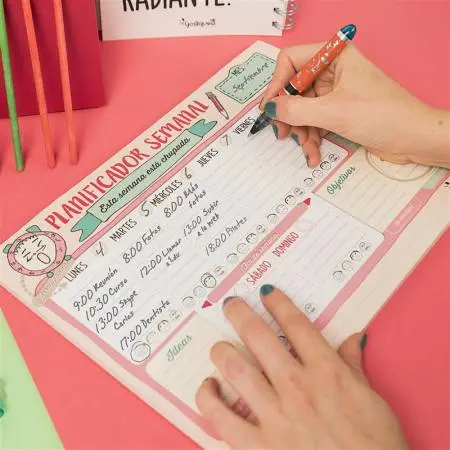 RADIANTE
MES:
Septiembre
PLANIFICADOR SEMANAL
Esta semana está chupada
LUNES 4 MARTES 5 MIÉRCOLES 6 JUEVES 7 VIERNES
9:00 Reunión
10:30 Curso
13:00 Skype
Carlos
17:00 Dentista
8:00 Fotos
12:00 Llamar
8:00 Más
fotos
13:00 Subir
a la web
18:00 Pilates
SÁBADO DOMINGO
Ideas
Objetivos